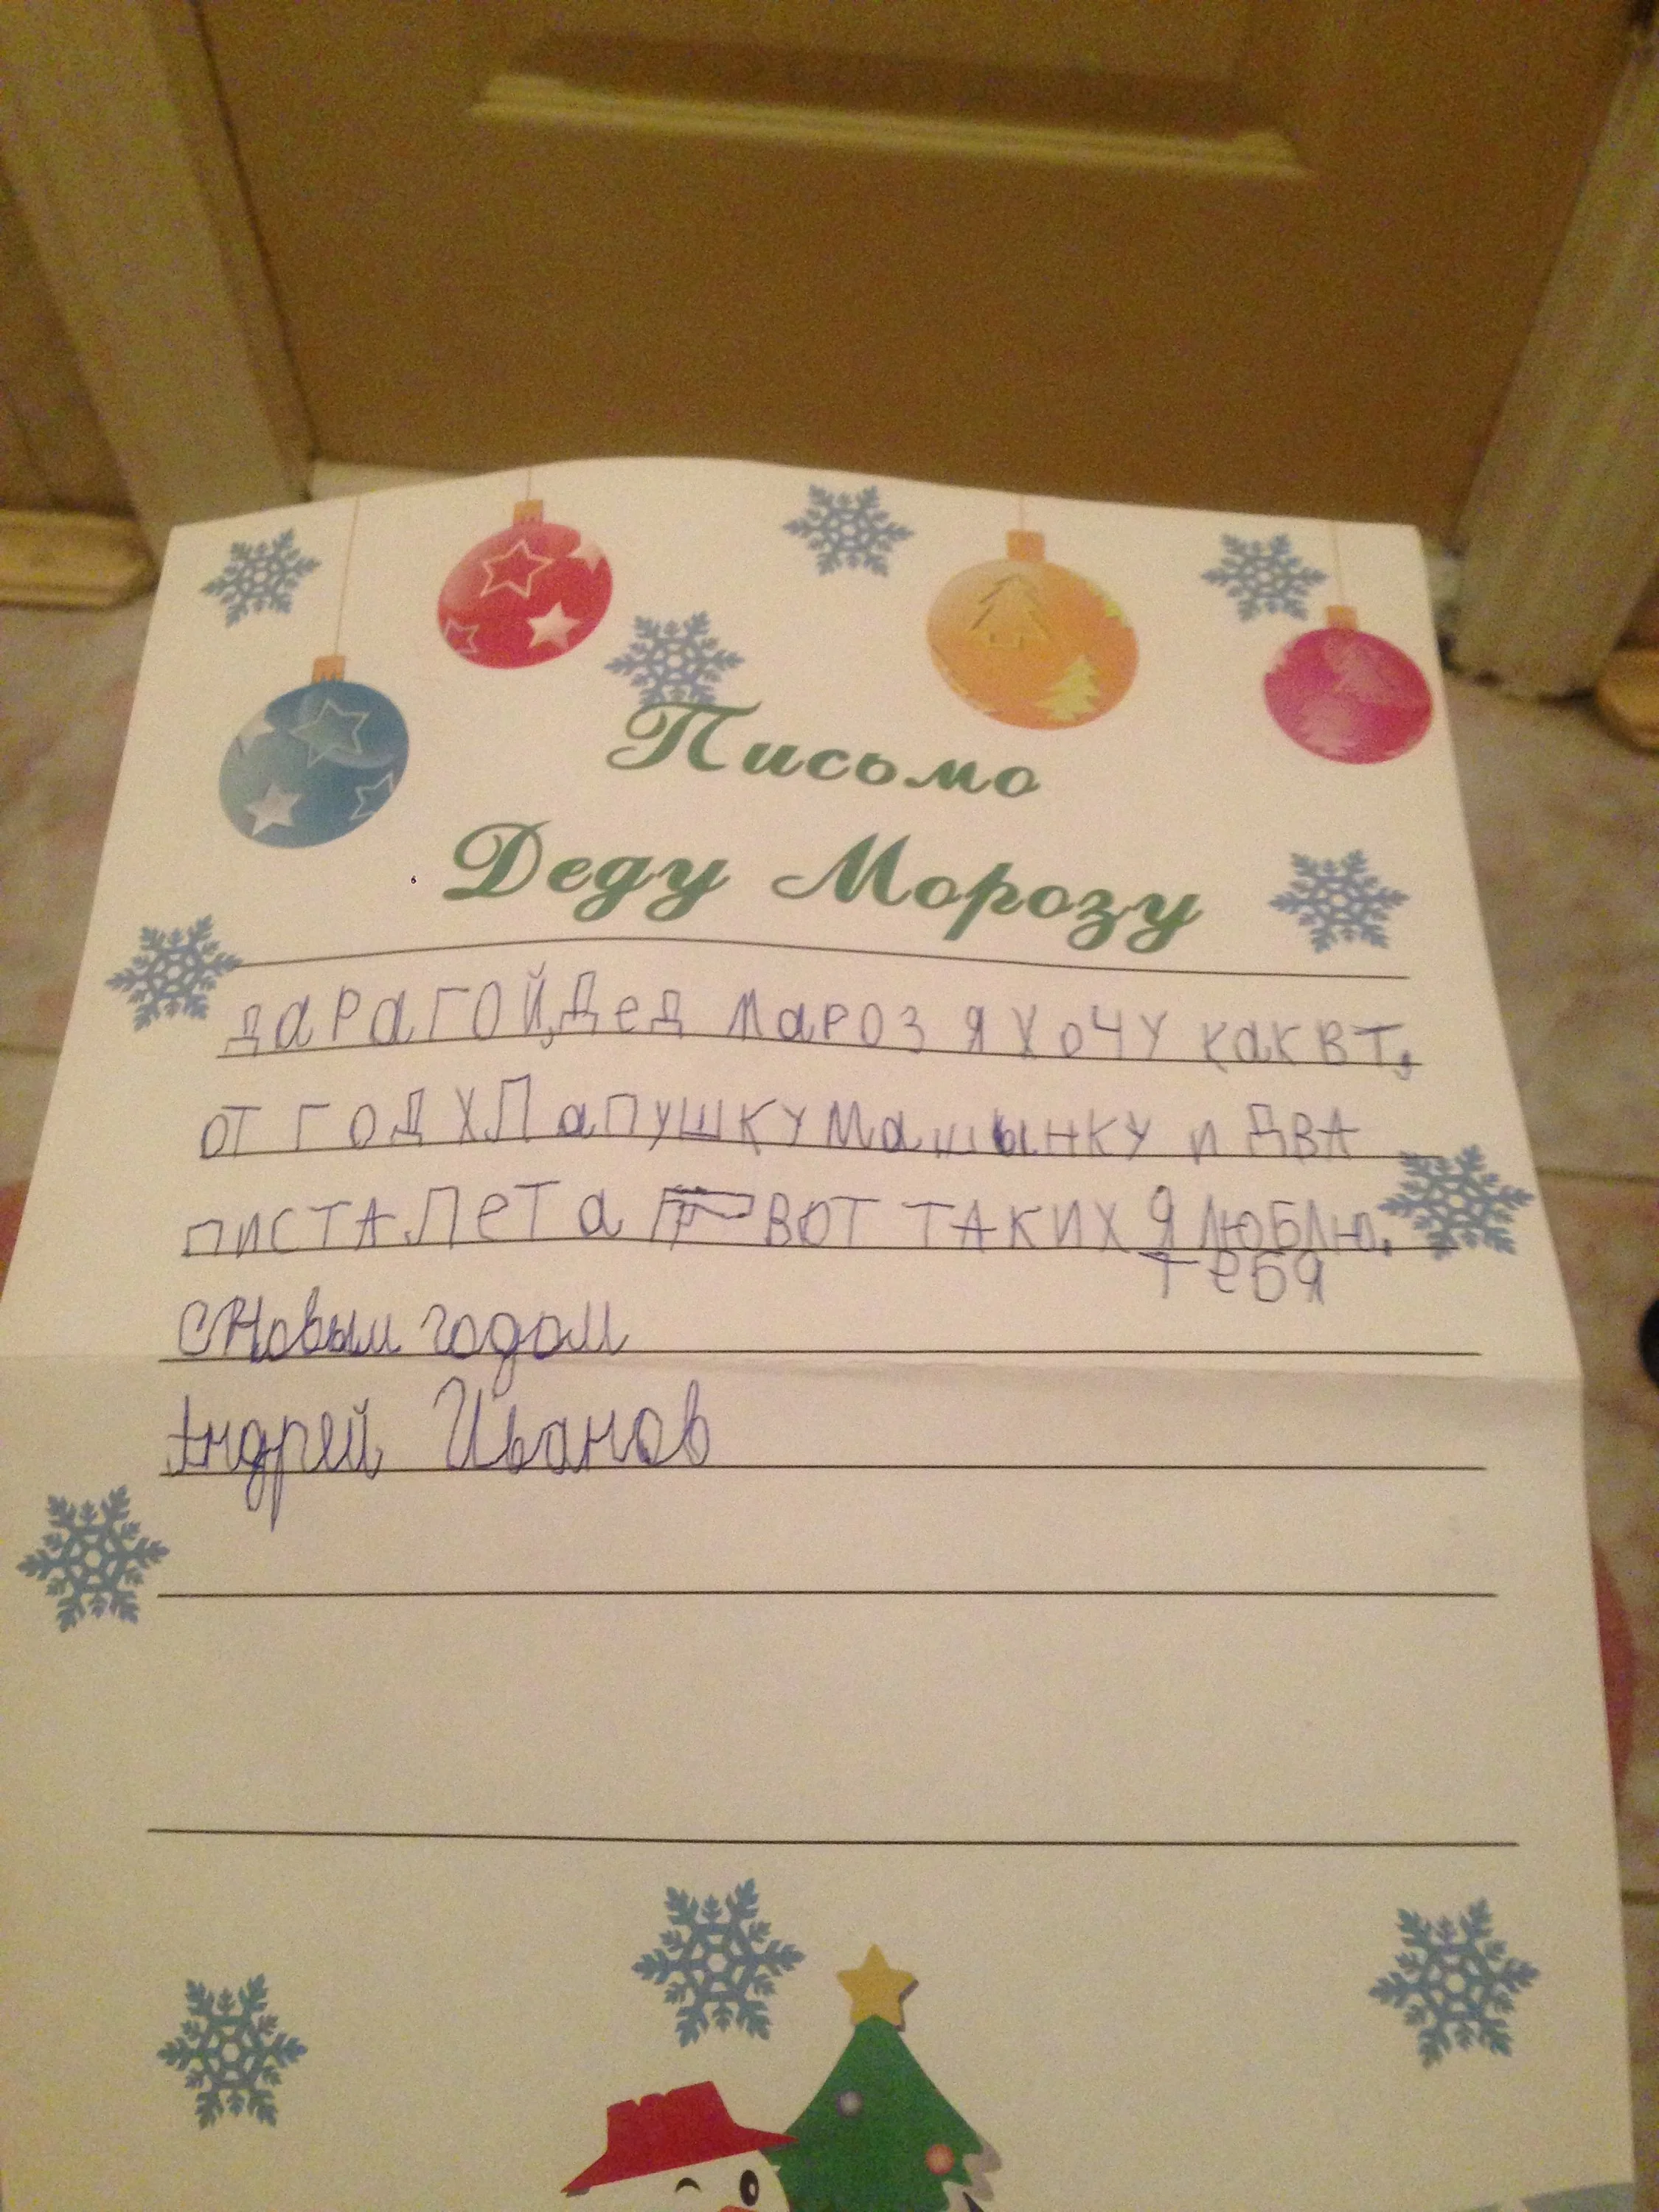 Письмо
Деду Морозу
ДАРАГОЙ, Дед МАРОЗ Я ХОЧУ КАК ВТ,
ОТ ГОД ХЛАПУШКУ МАШЫНКУ И ДВА
ПИСТАЛЕТА ВОТ ТАКИХ Я ЛЮБЛЮ.
ТЕБЯ
С Новым годом
Андрей Иванов